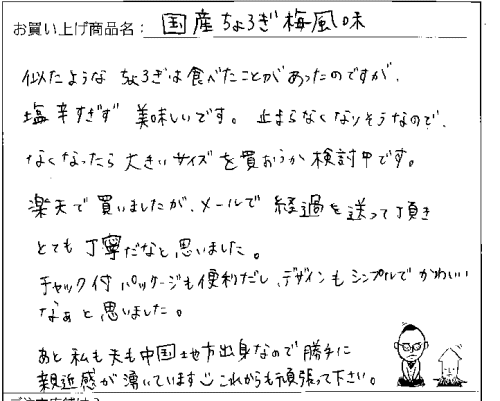 お買い上げ商品名：国産ちょろぎ梅風味
似たような ちょろぎは食べたことがあったのですが、
塩辛すぎず 美味しいです。止まらなくなりそうなので、
なくなったら 大きいサイズを買おうか検討中です。
楽天で買いましたが、メールで 経過を送って頂き
とても 丁寧だなと思いました。
チャック付パッケージも便利だし、デザインもシンプルで かわいい
なぁと思いました。
あと 私も夫も中国地方出身なので 勝手に
親近感が湧いています これからも頑張って下さい。